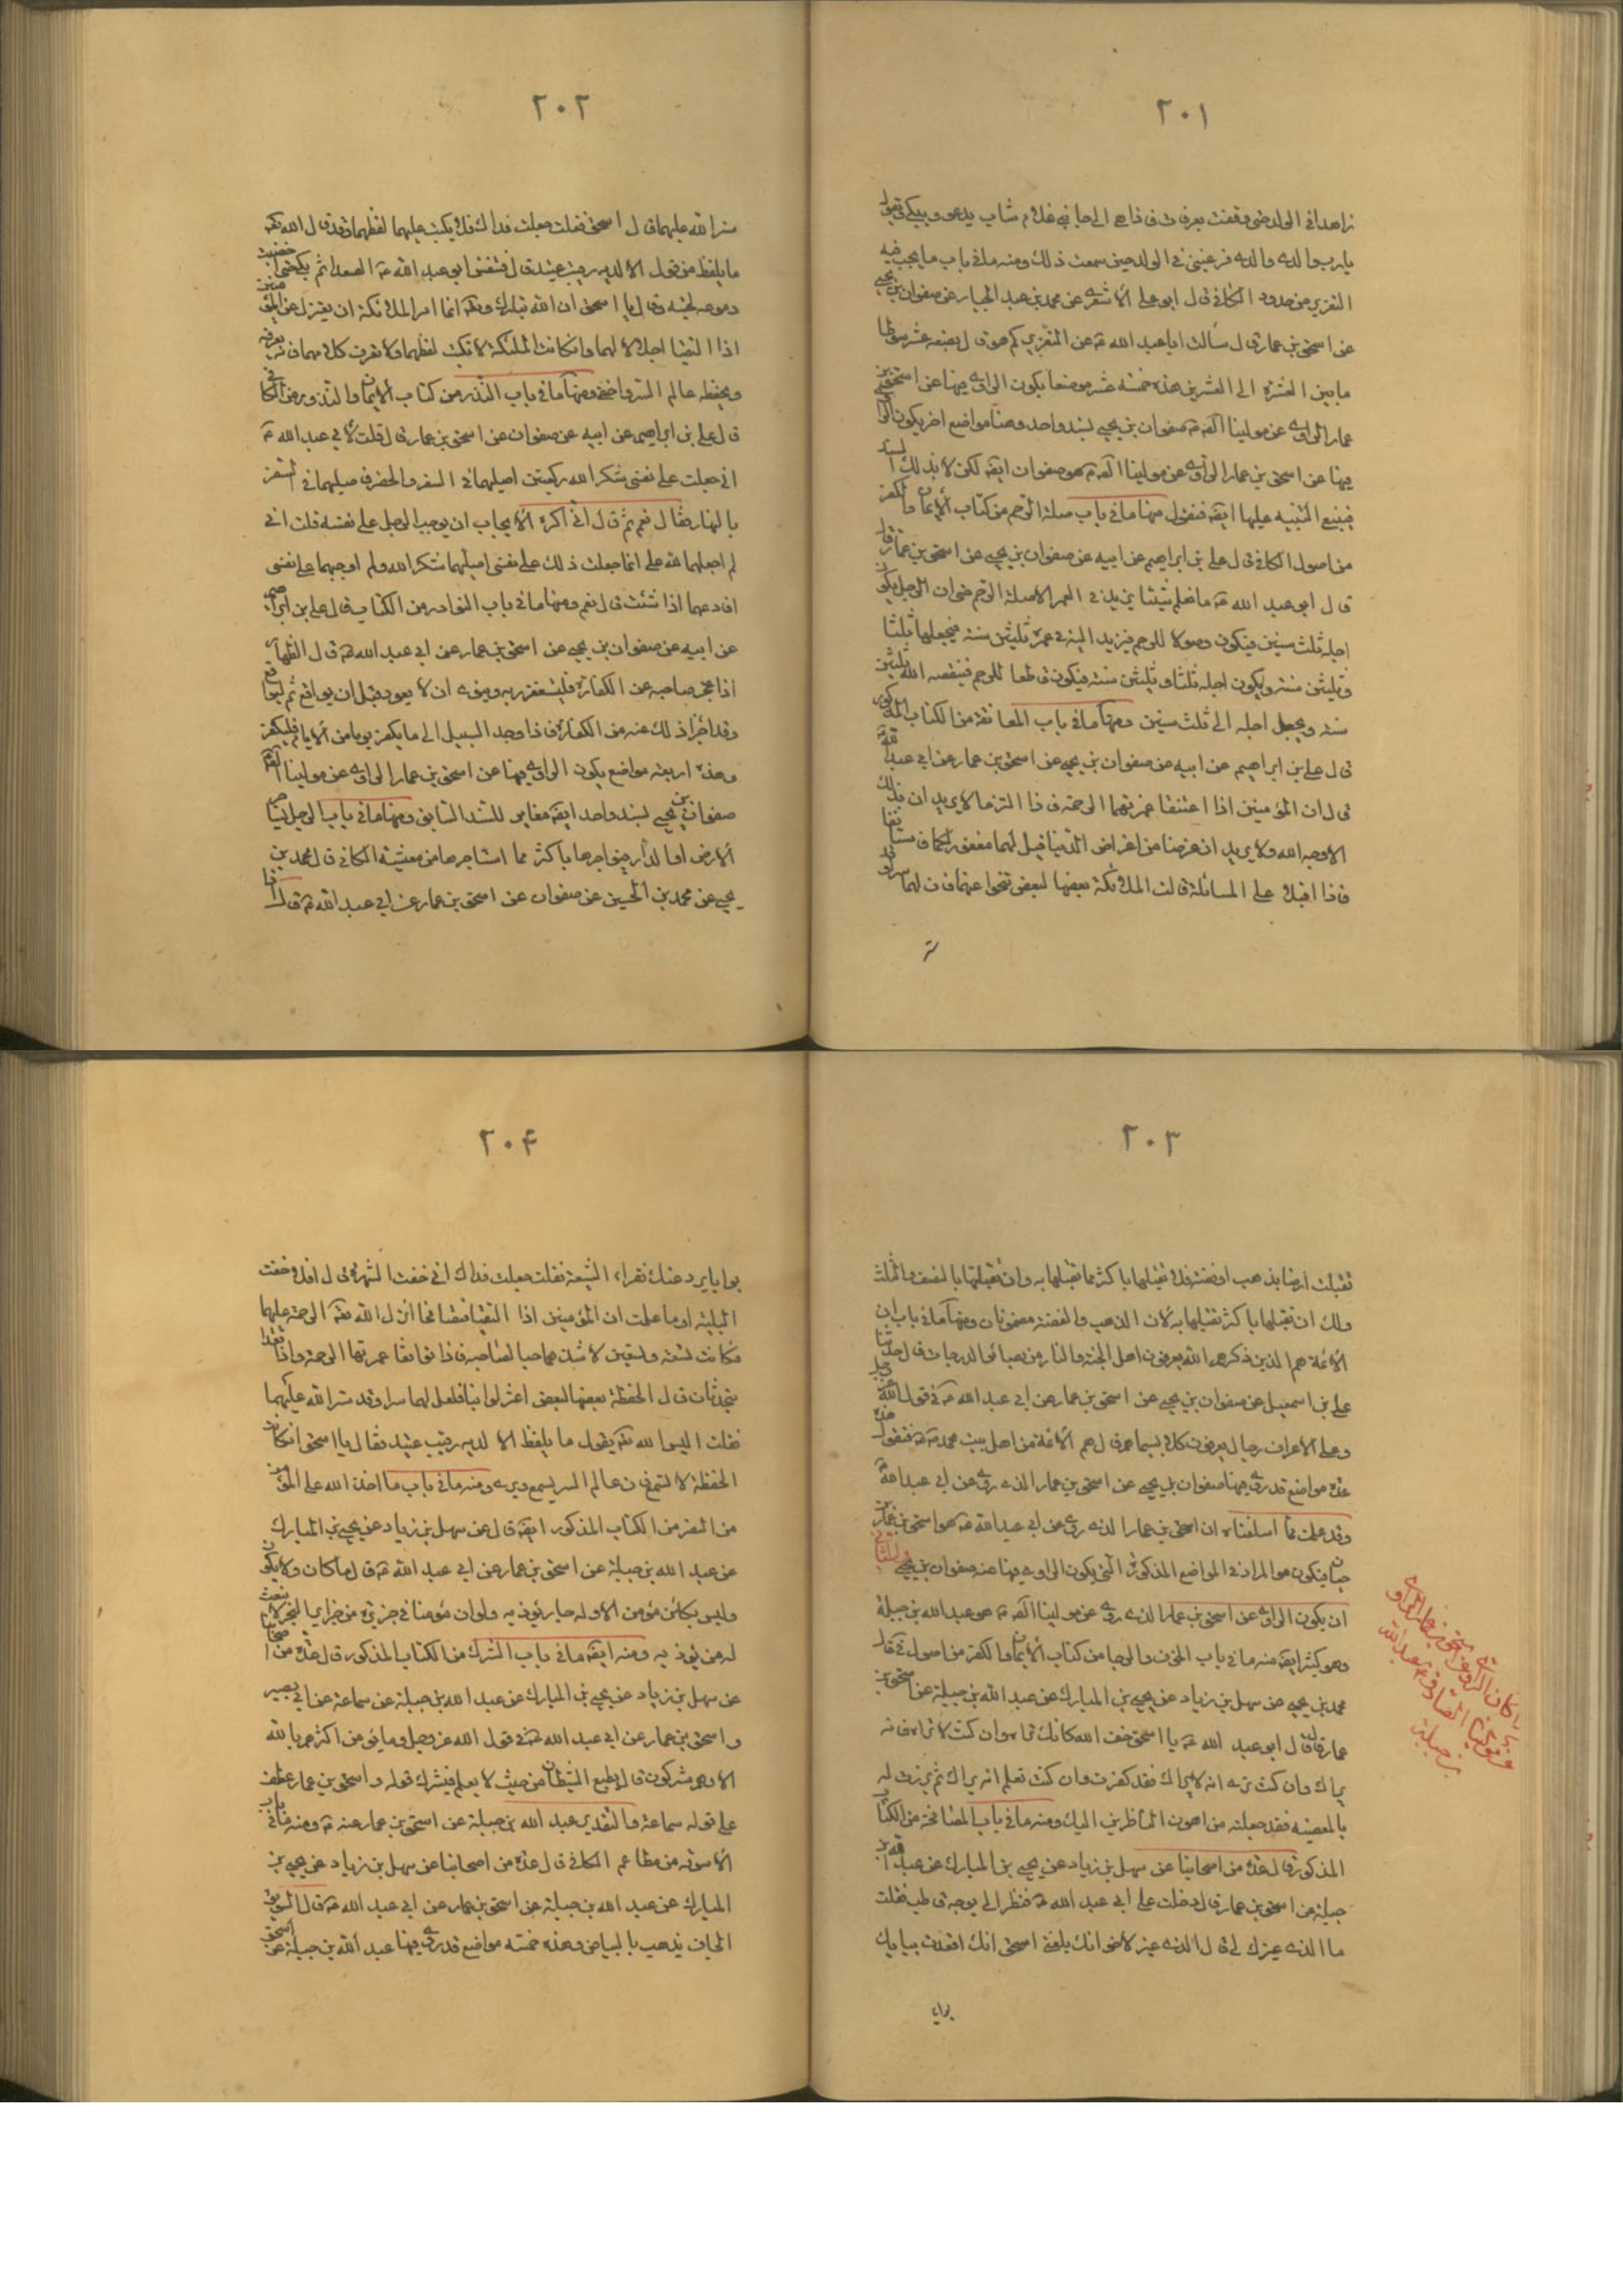 ٢٠١
زاهدا في الولد حتى وقفت بعرفة فاذا الى جانبي غلام شاب يدعو ويبكي ويقول
يا رب والدي والدي فرغبني في الولد حين سمعت ذلك ومنه ما في باب ما يجب فيه
التعزير من حدود الكافي قال ابو علي الاشعري عن محمد بن عبد الجبار عن صفوان بن يحيى
عن اسحق بن عمار قال سألت ابا عبد الله ع عن التعزير كم هو قال بضعة عشر سوطا
ما بين العشرة الى العشرين هذه خمسة عشر موضعا يكون الراوي فيها عن اسحق بن
عمار الراوي عن مولينا الصّ ع صفوان بن يحيى بسند واحد وهنا مواضع اخر يكون الراوي
فيها عن اسحق بن عمار الراوي عن مولينا الصّ ع هو صفوان ايضا لكن لا بذلك السند
فينبغي التنبيه عليها ايضا فنقول منها ما في باب صلة الرحم من كتاب الايمان والكفر
من اصول الكافي قال علي بن ابراهيم عن ابيه عن صفوان بن يحيى عن اسحق بن عمار قال
قال ابو عبد الله ع ما نعلم شيئا يزيد في العمر الا صلة الرحم حتى ان الرجل يكون
اجله ثلث سنين فيكون وصولا للرحم فيزيد الله في عمره ثلثين سنة فيجعلها ثلثا
وثلثين سنة ويكون اجله ثلثا وثلثين سنة فيكون قاطعا للرحم فينقصه الله ثلثين
سنة ويجعل اجله الى ثلث سنين ومنها ما في باب المعانقة من الكتاب المذكور
قال علي بن ابراهيم عن ابيه عن صفوان بن يحيى عن اسحق بن عمار عن ابي عبد الله ع
قال ان المؤمنين اذا اعتنقا غمرتهما الرحمة فاذا التزما لا يريدان بذلك
الا وجه الله ولا يريدان غرضا من اغراض الدنيا قيل لهما مغفورا لكما فاستأنفا
فاذا اقبلا على المسائلة قالت الملائكة بعضها لبعض تنحوا عنهما فان لهما سرا وقد
ستر
٢٠٢
ستر الله عليهما قال اسحق فقلت جعلت فداك فلا يكتب عليهما لفظهما وقد قال الله تعالى
ما يلفظ من قول الا لديه رقيب عتيد قال فتنفس ابو عبد الله ع الصعداء ثم بكى حتى اخضلت
دموعه لحيته وقال يا اسحق ان الله تبارك وتعالى انما امر الملائكة ان تعتزل عن المؤمنين
اذا التقيا اجلالا لهما وانه وان كانت الملئكة لا تكتب لفظهما ولا تعرف كلامهما فانه يعرفه
ويحفظه عالم السر واخفى ومنها ما في باب النذر من كتاب الايمان والنذور من الكافي
قال علي بن ابراهيم عن ابيه عن صفوان عن اسحق بن عمار قال قلت لابي عبد الله ع
اني جعلت على نفسي شكرا لله ركعتين اصليهما في السفر والحضر فاصليهما في السفر
بالنهار فقال نعم ثم قال اني اكره الايجاب ان يوجب الرجل على نفسه قلت اني
لم اجعلهما لله علي انما جعلت ذلك على نفسي اصليهما شكرا لله ولم اوجبهما على نفسي
افادعهما اذا شئت قال نعم ومنها ما في باب النوادر من الكتاب قال علي بن ابراهيم
عن ابيه عن صفوان بن يحيى عن اسحق بن عمار عن ابي عبد الله ع قال الظهار
اذا عجز صاحبه عن الكفارة فليستغفر ربه وينوي ان لا يعود قبل ان يواقع ثم ليواقع
وقد اجزأ ذلك عنه من الكفارة فاذا وجد السبيل الى ما يكفر يوما من الايام فليكفر
وهذه اربعة مواضع يكون الراوي فيها عن اسحق بن عمار الراوي عن مولينا الصّ ع
صفوان بن يحيى بسند واحد ايضا مغاير للسند السابق ومنها ما في باب الرجل يستأجر
الارض او الدار فيؤاجرها باكثر مما استأجرها من معيشة الكافي قال محمد بن
يحيى عن محمد بن الحسين عن صفوان عن اسحق بن عمار عن ابي عبد الله ع قال اذا
٢٠٣
تقبلت ارضا بذهب او فضة فلا تقبلها باكثر مما تقبلتها به وان تقبلتها بالنصف والثلث
ولك ان تقبلها باكثر تقبلها به لان الذهب والفضة مضمونان ومنها ما في باب ان
الائمة هم الذين ذكرهم الله يعرفون اهل الجنة والنار من بصائر الدرجات قال حدثنا
علي بن اسمعيل عن صفوان بن يحيى عن اسحق بن عمار عن ابي عبد الله ع في قول الله عز وجل
وعلى الاعراف رجال يعرفون كلا بسيماهم قال هم الائمة من اهل بيت محمد ص فنقول هذه
عدة مواضع قد روى فيها صفوان بن يحيى عن اسحق بن عمار الذي روى عن ابي عبد الله ع
وقد علمت مما اسلفناه ان اسحق بن عمار الذي روى عن ابي عبد الله ع هو اسحق بن عمار بن
حيان فيكون هو المراد في المواضع المذكورة التي يكون الراوي فيها عنه صفوان بن يحيى والثاني
ان يكون الراوي عن اسحق بن عمار الذي روى عن مولينا الصّ ع هو عبد الله بن جبلة
وهو كثير ايضا منه ما في باب الخوف والرجا من كتاب الايمان والكفر من اصول في قال
محمد بن يحيى عن سهل بن زياد عن يحيى بن المبارك عن عبد الله بن جبلة عن اسحق بن
عمار قال قال ابو عبد الله ع يا اسحق خف الله كانك تراه وان كنت لا تراه فانه
يراك وان كنت ترى انه لا يراك فقد كفرت وان كنت تعلم انه يراك ثم برزت له
بالمعصية فقد جعلته من اهون الناظرين اليك ومنه ما في باب المصافحة من الكتاب
المذكور قال عدة من اصحابنا عن سهل بن زياد عن يحيى بن المبارك عن عبد الله بن
جبلة عن اسحق بن عمار قال دخلت على ابي عبد الله ع فنظر الي بوجه قاطب فقلت
ما الذي غيرك لي قال الذي غيرك لاخوانك بلغني اسحق انك اقعدت ببابك
بوابا
٢٠۴
بوابا يرد عنك فقراء الشيعة فقلت جعلت فداك اني خفت الشهرة قال افلا خفت
البلية اوما علمت ان المؤمنين اذا التقيا فتصافحا انزل الله تعالى الرحمة عليهما
فكانت تسعة وتسعين لاشدهما حبا لصاحبه فاذا توافقا غمرتهما الرحمة واذا قعدا
يتحدثان قال الحفظة بعضها لبعض اعتزلوا بنا فلعل لهما سرا وقد ستر الله عليهما
فقلت اليس الله تعالى يقول ما يلفظ الا لديه رقيب عتيد فقال يا اسحق ان كانت
الحفظة لا تسمع فان عالم السر يسمع ويرى ومنه ما في باب ما اخذ الله على المؤمن
من الصبر من الكتاب المذكور ايضا قال عن سهل بن زياد عن يحيى بن المبارك
عن عبد الله بن جبلة عن اسحق بن عمار عن ابي عبد الله ع قال ما كان ولا يكون
وليس بكائن مؤمن الا وله جار يؤذيه ولو ان مؤمنا في جزيرة من جزاير البحر لابتعث
له من يؤذيه ومنه ايضا ما في باب الشرك من الكتاب المذكور قال عدة من اصحابنا
عن سهل بن زياد عن يحيى بن المبارك عن عبد الله بن جبلة عن سماعة عن ابي بصير
واسحق بن عمار عن ابي عبد الله ع في قول الله عز وجل وما يؤمن اكثرهم بالله
الا وهم مشركون قال يطيع الشيطان من حيث لا يعلم فيشرك قوله واسحق بن عمار عطف
على قوله سماعة والتقدير عبد الله بن جبلة عن اسحق بن عمار عنه ع ومنه ما في باب
الاسوقة من مطاعم الكافي قال عدة من اصحابنا عن سهل بن زياد عن يحيى بن
المبارك عن عبد الله بن جبلة عن اسحق بن عمار عن ابي عبد الله ع قال السويق
الجاف يذهب بالبياض وهذه خمسة مواضع قد روى فيها عبد الله بن جبلة عن اسحق